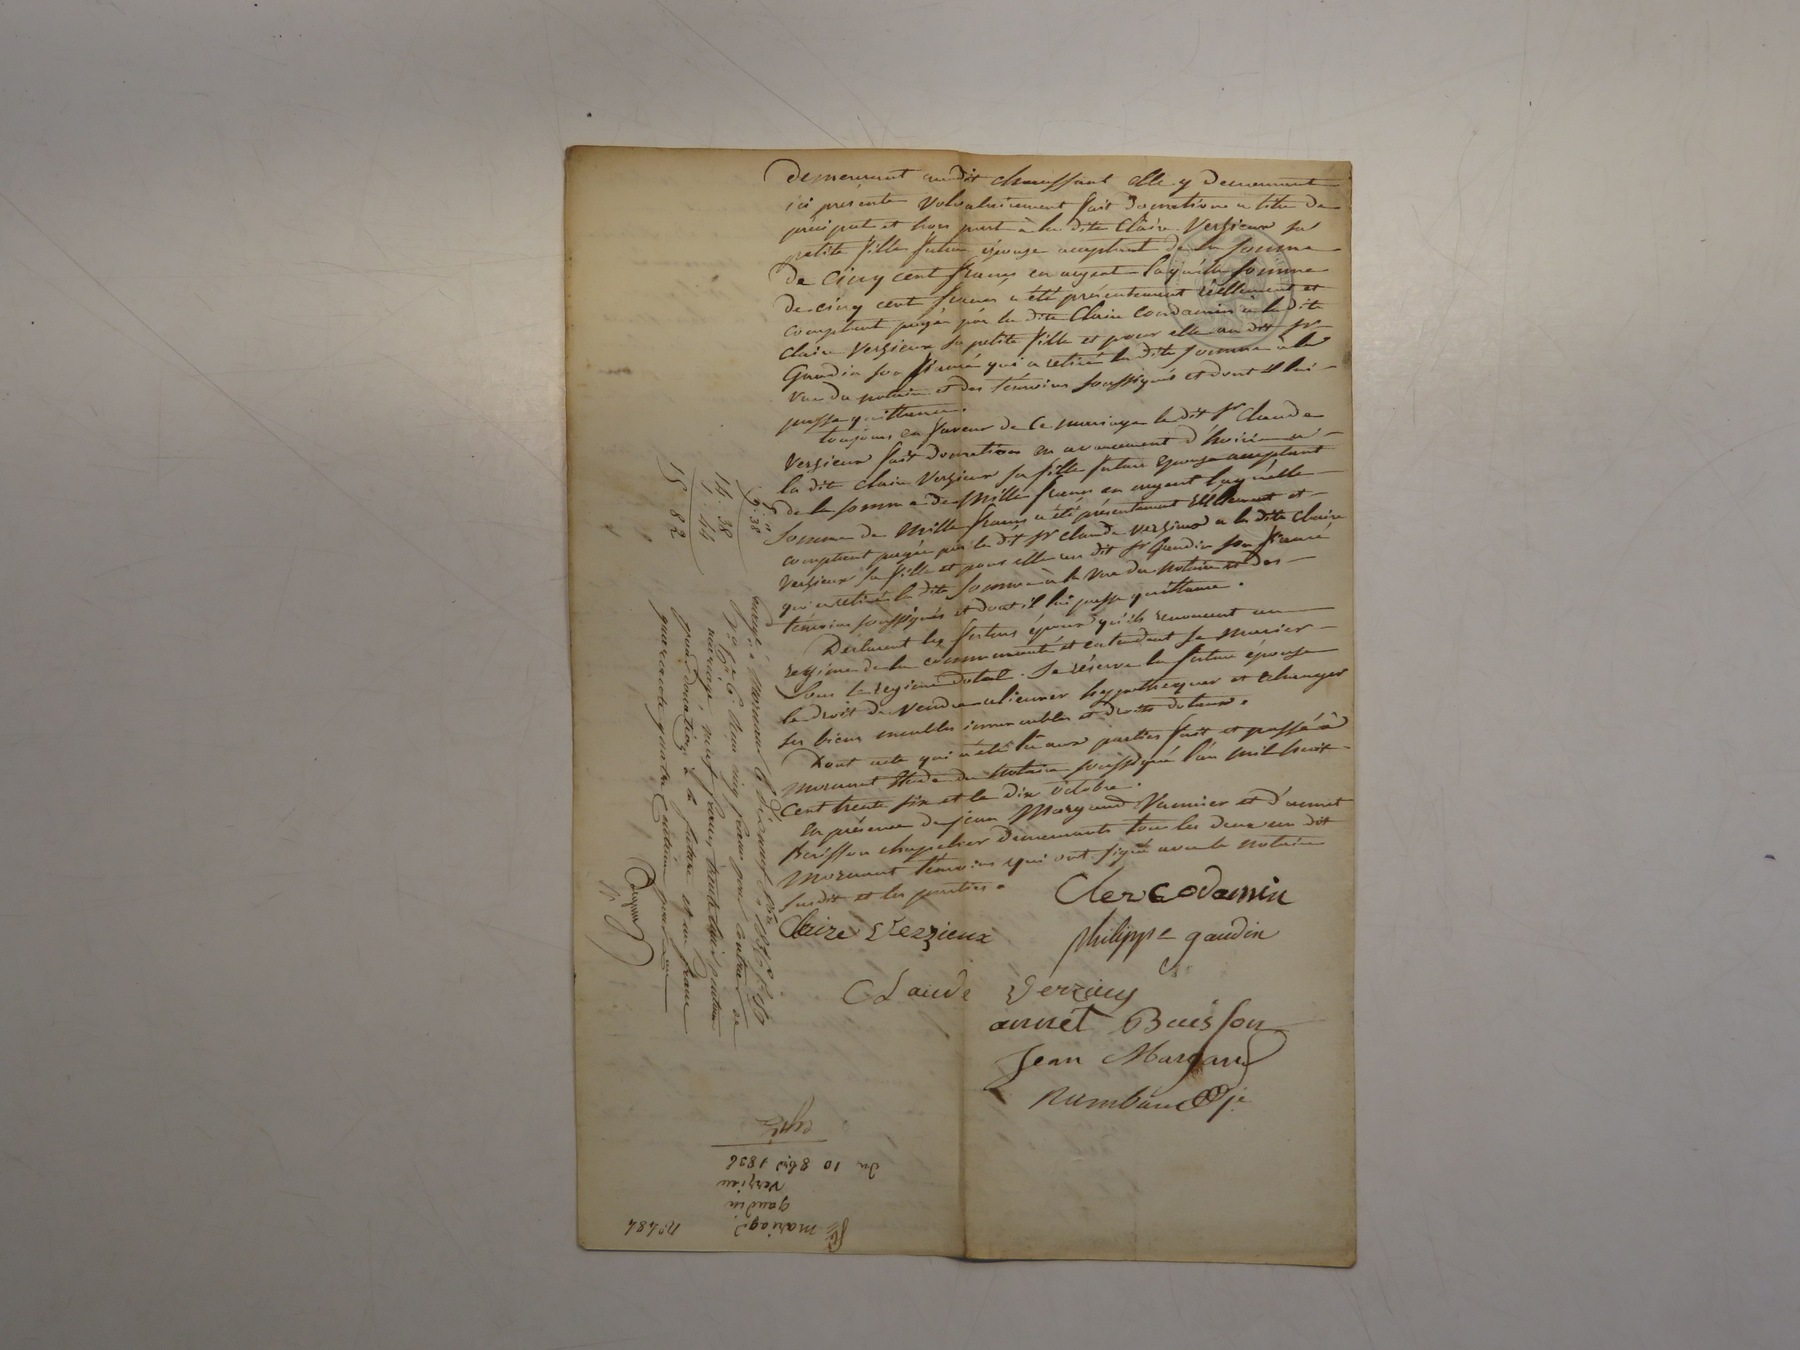 demeurant audit chaussant elle y demeurant
ici présente volontairement fait donnation a titre de
préciput et hors part à la dite Claire Verzieux sa
petite fille future épouse acceptant de la somme
de cinq cent francs en argent laquelle somme
de cinq cent francs a été présentement réellement et
comptant payée par la dite Claire Condamin à la dite
Claire Verzieux sa petite fille et pour elle au dit Sr
Gaudin son fiancé qui a retiré la dite somme à la
vue du notaire et des témoins soussignés et dont il lui
passe quittance.
toujours en faveur de ce mariage le dit Sr Claude
Verzieux fait donnation en avancement d'hoirie a
la dite Claire Verzieux sa fille future épouse acceptant
de la somme de Mille francs en argent laquelle
somme de Mille francs a été présentement réellement et
comptant payée par le dit Sr Claude Verzieux a la dite Claire
Verzieux sa fille et pour elle au dit Sr Gaudin son fiancé
qui a retiré la dite somme à la vue du notaire et des
témoins soussignés et dont il lui passe quittance.
Déclarent les futurs époux qu'ils renoncent au
régime de la communauté et entendent se marier
sous le régime dotal. Se réserve la future épouse
le droit de vendre aliener hypothequer et échanger
ses biens meubles immeubles et droits dotaux.
Dont acte qui a été lu aux parties fait et passé à
Mornant Etude du notaire soussigné l'an mil huit
cent trente six et le dix octobre.
En présence de jean Margaud Vannier et d'annet
Buisson chapelier demeurants tous les deux au dit
Mornant témoins qui ont signé avec le notaire
susdit et les parties.
Cler codamin
Claire Verzieux
philippe gaudin
Claude Verzieux
annet Buisson
Jean Margaud
Rambaud
9. 38
14. 38
1. 44
15. 82
mariage neuf francs trente huit centimes
pour donation à la future et un franc
quarante quatre centimes pour
N° 484
mariage
gaudin
Verzieu
du 10 8bre 1836